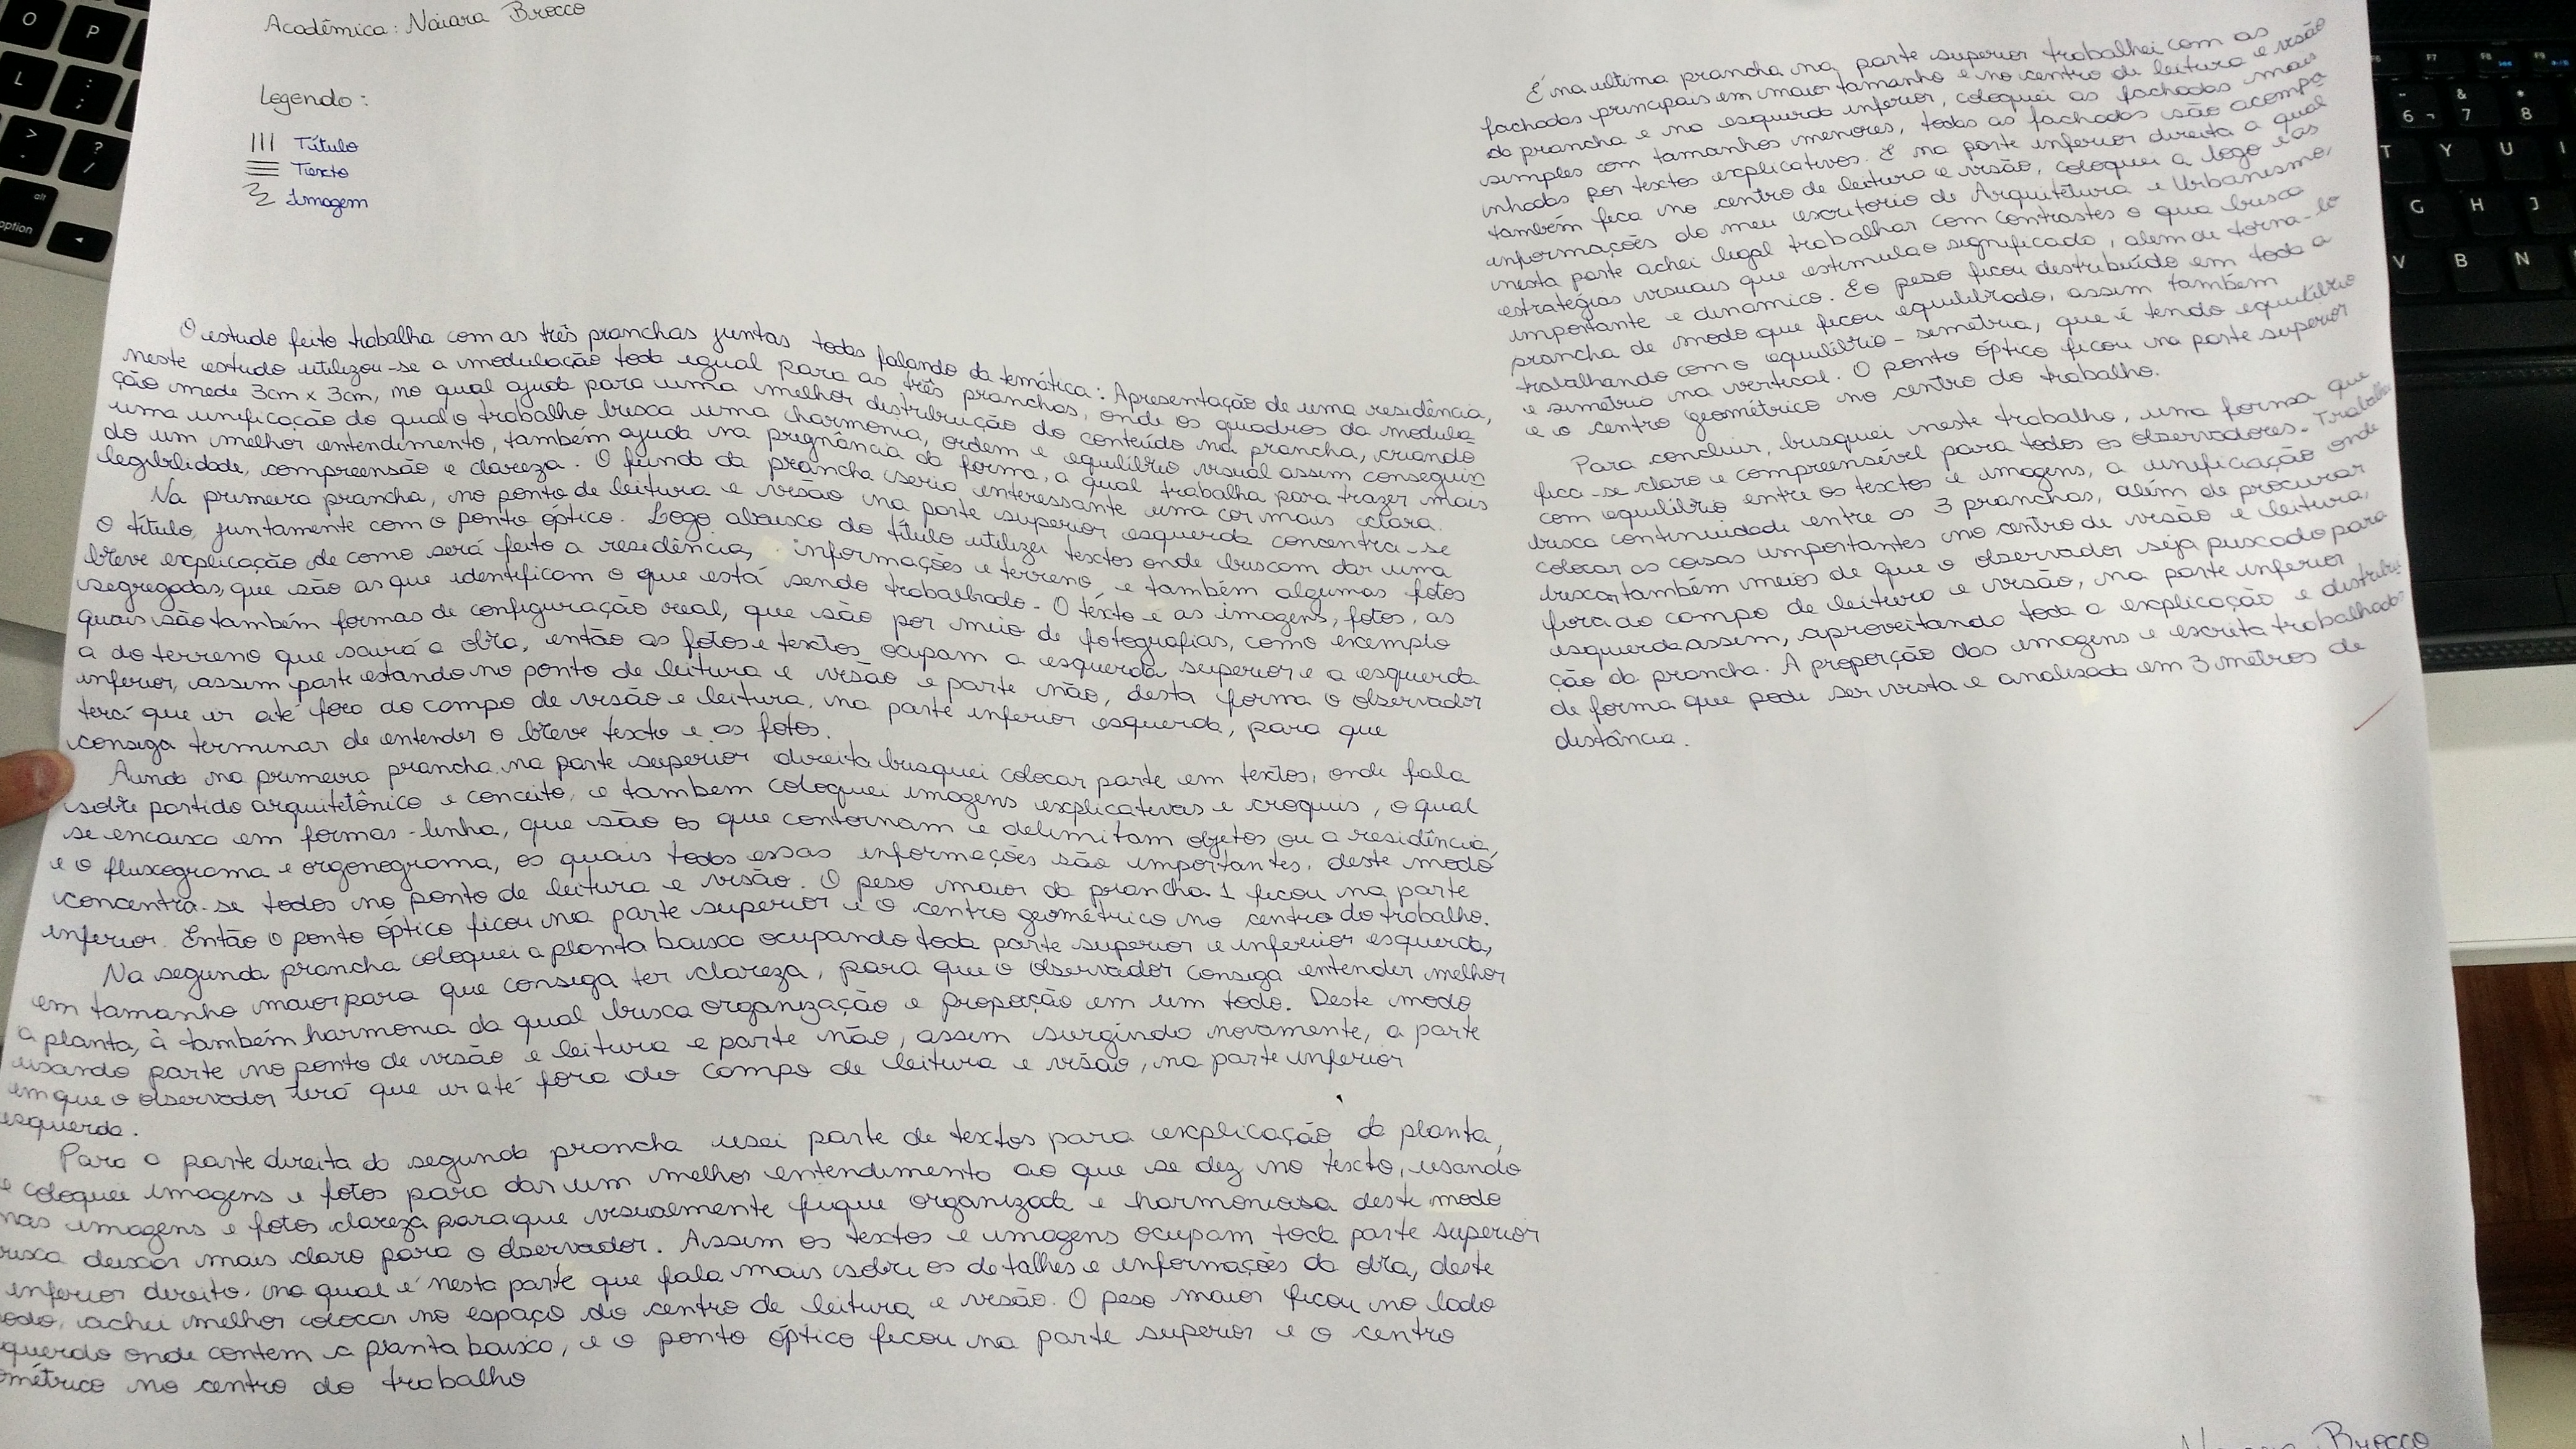 Acadêmica: Naiara Brocco
Legenda:
Título
Texto
Imagem
O estudo feito trabalha com as três pranchas juntas todas falando da temática: Apresentação de uma residência,
neste estudo utilizou-se a modulação toda igual para as três pranchas, onde os quadros da modula
ção mede 3cm x 3cm, no qual ajuda para uma melhor distribuição do conteúdo na prancha, criando
uma unificação do qual o trabalho busca uma charmonia, ordem e equilíbrio visual assim conseguin
do um melhor entendimento, também ajuda na pregnância da forma, a qual trabalha para trazer mais
legibilidade, compreensão e clareza. O fundo da prancha seria interessante uma cor mais clara.
Na primeira prancha, no ponto de leitura e visão na parte superior esquerda concentra-se
o título, juntamente com o ponto óptico. Logo abaixo do título utilizei textos onde buscam dar uma
breve explicação de como será feito a residência, informações e terreno e também algumas fotos
segregadas, que são as que identificam o que está sendo trabalhado. O texto e as imagens, fotos, as
quais são também formas de configuração real, que são por meio de fotografias, como exemplo
a do terreno que sairá a obra, então as fotos e textos ocupam a esquerda superior e a esquerda
inferior, assim parte estando no ponto de leitura e visão e parte não, desta forma o observador
terá que ir até fora do campo de visão e leitura, na parte inferior esquerda, para que
consiga terminar de entender o breve texto e as fotos.
Ainda na primeira prancha na parte superior direita busquei colocar parte em textos, onde fala
sobre partido arquitetônico e conceito, e também coloquei imagens explicativas e croquis, o qual
se encaixa em formas-linha, que são os que contornam e delimitam objetos ou a residência,
e o fluxograma e orgonograma, os quais todas essas informações são importantes, deste modo
concentra-se todos no ponto de leitura e visão. O peso maior da prancha 1 ficou na parte
inferior. Então o ponto óptico ficou na parte superior e o centro geométrico no centro do trabalho.
Na segunda prancha coloquei a planta baixa ocupando toda parte superior e inferior esquerda,
em tamanho maior para que consiga ter clareza, para que o observador consiga entender melhor
a planta, à também harmonia da qual busca organização e proporção em um todo. Deste modo
usando parte no ponto de visão e leitura e parte não, assim surgindo novamente, a parte
em que o observador terá que ir até fora do campo de leitura e visão, na parte inferior
esquerda.
Para a parte direita da segunda prancha usei parte de textos para explicação da planta,
e coloquei imagens e fotos para dar um melhor entendimento ao que se dez no texto, usando
nas imagens e fotos clareza para que visualmente fique organizada e harmoniosa deste modo
busca deixar mais claro para o observador. Assim os textos e imagens ocupam toda parte superior
inferior direito, na qual é nesta parte que fala mais sobre os detalhes e informações da obra, deste
modo, achei melhor colocar no espaço do centro de leitura e visão. O peso maior ficou no lado
querdo onde contem a planta baixa, e o ponto óptico ficou na parte superior e o centro
ométrico no centro do trabalho
E na ultima prancha na parte superior trabalhei com as
fachadas principais em maior tamanho e no centro de leitura e visão
da prancha e na esquerda inferior, coloquei as fachadas mais
simples com tamanhos menores, todas as fachadas são acompa
nhadas por textos explicativos. E na parte inferior direita a qual
também fica no centro de leitura e visão, coloquei a logo e as
informações do meu escritório de Arquitetura e Urbanismo,
nesta parte achei legal trabalhar com contrastes o qua busca
estratégias visuais que estimula o significado, alem de torna-lo
importante e dinâmico. Eo peso ficou destribuído em toda a
prancha de modo que ficou equilibrado, assim também
trabalhando com o equilíbrio-semétria, que é tendo equilíbrio
e simétrio na vertical. O ponto óptico ficou na parte superior
e o centro geométrico no centro do trabalho.
Para concluir, busquei neste trabalho, uma forma que
fica-se claro e compreensível para todos os observadores. Trabalhei
com equilíbrio entre os textos e imagens, a unificiação onde
busca continuidade entre as 3 pranchas, além de procurar
colocar as coisas importantes no centro de visão e leitura,
buscar também meios de que o observador seja puscado para
fora do campo de leitura e visão, na parte inferior
esquerda assim, aproveitando toda a explicação e distribui
ção da prancha. A proporção das imagens e escrita trabalhadas
de forma que pode ser vista e analisada em 3 metros de
distância.
Brocco